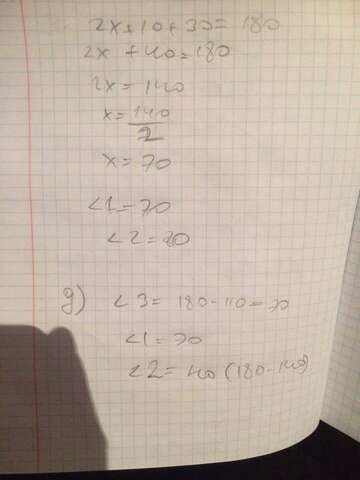 2x+10+30=180
2x +40=180
2x=140
x=140
2
x=70
<1=70
<2=80
д) <3= 180-110=70
<1=70
<2=40 (180-140)